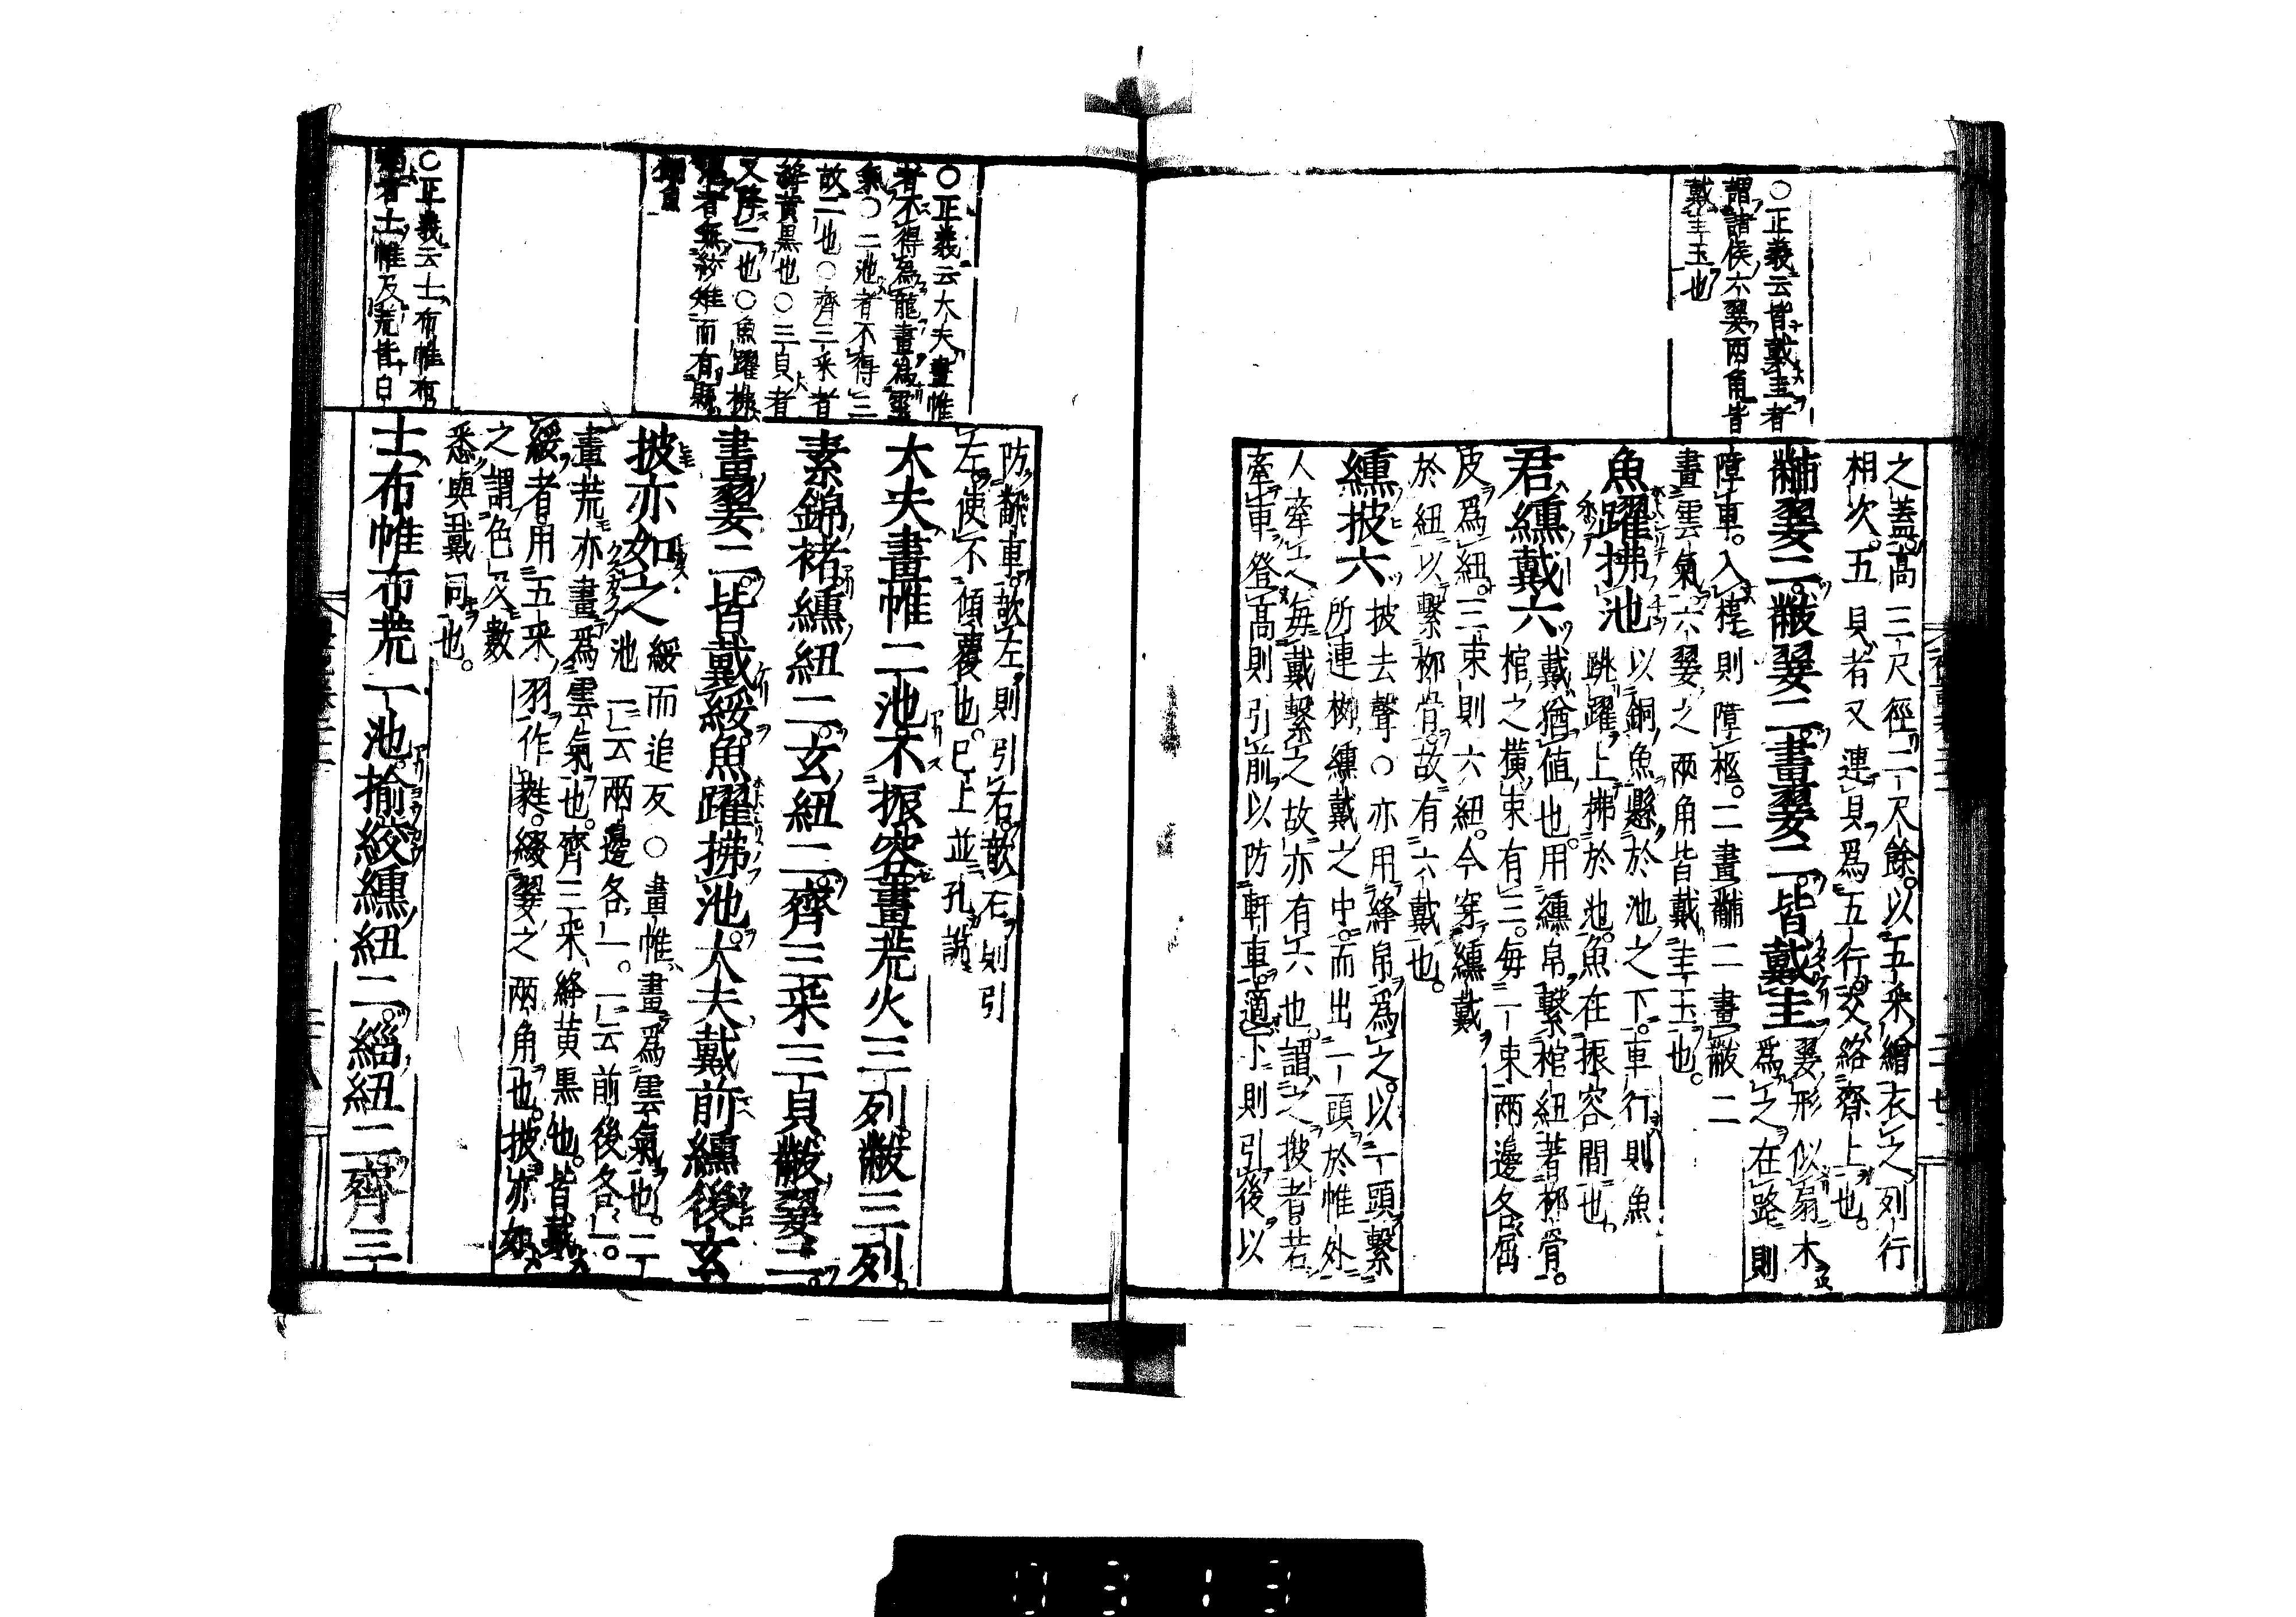 ○正義云皆戴圭者
謂諸侯六翣兩角皆
戴圭玉也
之蓋高三尺徑二尺餘以五采繒衣之列行
相次五貝者又連貝爲五行交絡齊上也
黼翣二黻翣二畫翣二皆戴圭
翣形似扇木
爲之在路則
障車入椁則障柩二畫黼二畫黻二
畫雲氣六翣之兩角皆戴圭玉也
魚躍拂池
以銅魚懸於池之下車行則魚
跳躍上拂於池魚在振容間也
君纁戴六
戴猶値也用纁帛繫棺紐著柳骨
棺之橫束有三每一束兩邊各屈
皮爲紐三束則六紐今穿纁戴
於紐以繫柳骨故有六戴也
纁披六
披去聲○亦用絳帛爲之以一頭繫
所連柳纁戴之中而出一頭於帷外
人牽之每戴繫之故亦有六也謂之披者若
牽車登高則引前以防軒車適下則引後以
○正義云大夫畫帷
者不得爲龍畫爲雲
氣○二池者不得三
故二也○齊三采者
絳黃黑也○三貝者
又降二也○魚躍拂
池者無絞雉而有縣
銅魚
防翻車欹左則引右欹右則引
左使不傾覆也已上並孔說
大夫畫帷二池不振容畫荒火三列黻三列
素錦褚纁紐二玄紐二齊三采三貝黻翣二
畫翣二皆戴綏魚躍拂池大夫戴前纁後玄
披亦如之
綏而追反○畫帷畫爲雲氣也二
池一云兩邊各一一云前後各一
畫荒亦畫爲雲氣也齊三采絳黃黑也皆戴
綏者用五采羽作蕤綴翣之兩角也披亦如
之謂色及數
悉與戴同也
○正義云士布帷布
荒者士帷及荒皆白
士布帷布荒一池揄絞纁紐二緇紐二齊三
0313